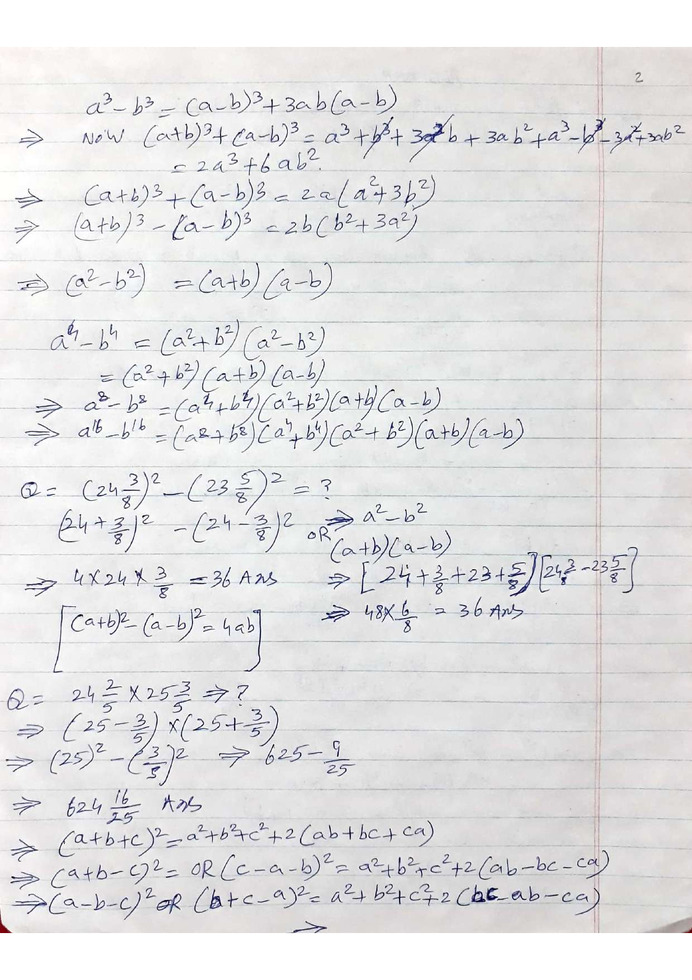 2
a³-b³ = (a-b)³+3ab(a-b)
⇒ Now (a+b)³+(a-b)³ = a³+b³+3a²b+3ab²+a³-b³-3a²+3ab²
= 2a³+6ab².
⇒ (a+b)³+(a-b)³ = 2a(a²+3b²)
⇒ (a+b)³-(a-b)³ = 2b(b²+3a²)
⇒ (a²-b²) = (a+b)(a-b)
a⁴-b⁴ = (a²+b²)(a²-b²)
= (a²+b²)(a+b)(a-b)
⇒ a⁸-b⁸ = (a⁴+b⁴)(a²+b²)(a+b)(a-b)
⇒ a¹⁶-b¹⁶ = (a⁸+b⁸)(a⁴+b⁴)(a²+b²)(a+b)(a-b)
Q = (24 3/8)² - (23 5/8)² = ?
(24+3/8)² - (24-3/8)² OR ⇒ a²-b²
(a+b)(a-b)
⇒ 4×24×3/8 = 36 Ans ⇒ [24+3/8+23+5/8][24 3/8-23 5/8]
[(a+b)²-(a-b)² = 4ab] ⇒ 48×6/8 = 36 Ans
Q = 24 2/5 × 25 3/5 ⇒ ?
⇒ (25-3/5)×(25+3/5)
⇒ (25)²-(3/5)² ⇒ 625-9/25
⇒ 624 16/25 Ans
⇒ (a+b+c)² = a²+b²+c²+2(ab+bc+ca)
⇒ (a+b-c)² = OR (c-a-b)² = a²+b²+c²+2(ab-bc-ca)
⇒ (a-b-c)² OR (b+c-a)² = a²+b²+c²+2(bc-ab-ca)
⇒